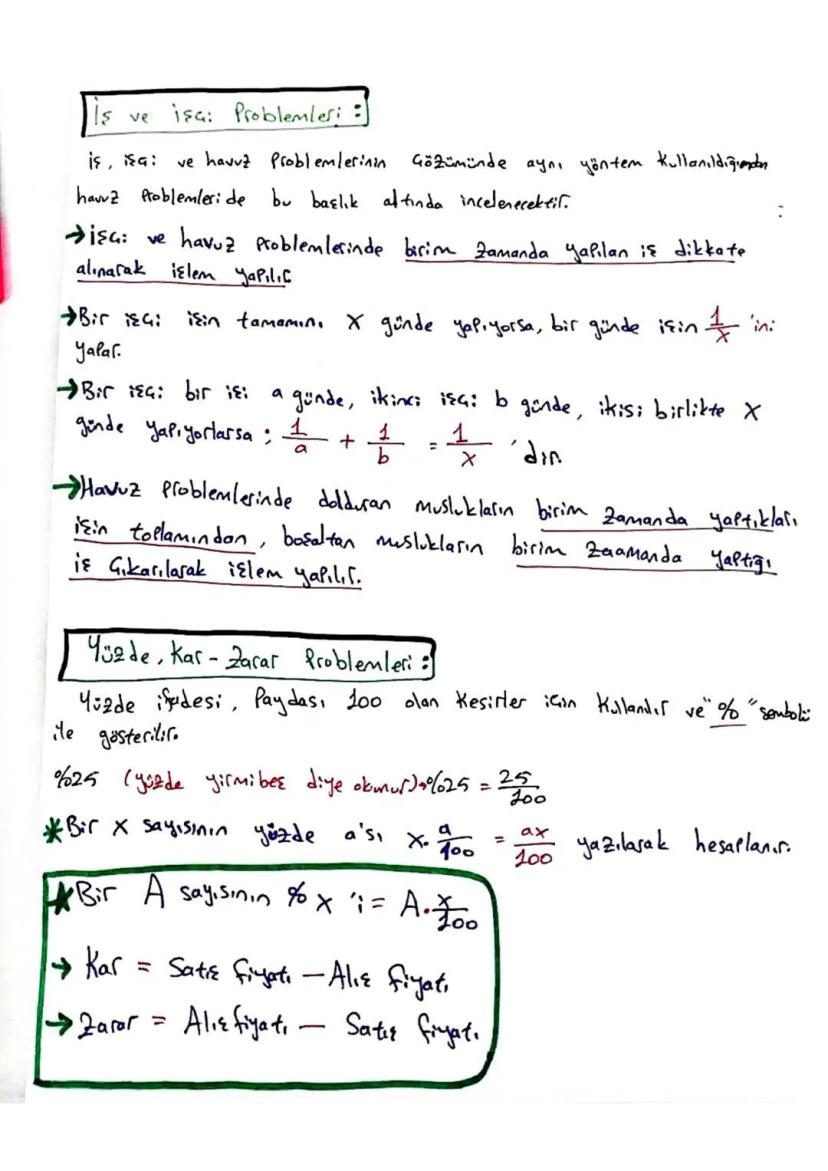 İş ve işçi Problemleri :
iş, işçi ve havuz Problemlerinin Çözümünde aynı yöntem kullanıldığından
havuz Problemleri de bu başlık altında incelenecektir.
→ işçi ve havuz Problemlerinde birim zamanda yapılan iş dikkate
alınarak işlem yapılır
→ Bir işçi işin tamamını x günde yapıyorsa, bir günde işin 1/x 'ini
yapar.
→ Bir işçi bir işi a günde, ikinci işçi b günde, ikisi birlikte x
günde yapıyorlarsa ; 1/a + 1/b = 1/x 'dır.
→ Havuz Problemlerinde dolduran muslukların birim zamanda yaptıkları
işin toplamından, boşaltan muslukların birim zaamanda yaptığı
iş Çıkarılarak işlem yapılır.
Yüzde, Kar - Zarar Problemleri :
Yüzde ifadesi, Paydası 100 olan kesirler için kullanılır ve "%" sembolü
ile gösterilir.
%25 (yüzde yirmibeş diye okunur) → %25 = 25/100
* Bir x sayısının yüzde a'sı x. a/100 = ax/100 yazılarak hesaplanır.
* Bir A sayısının % x 'i = A. x/100
→ Kar = Satış fiyatı - Alış fiyatı
→ Zarar = Alış fiyatı - Satış fiyatı